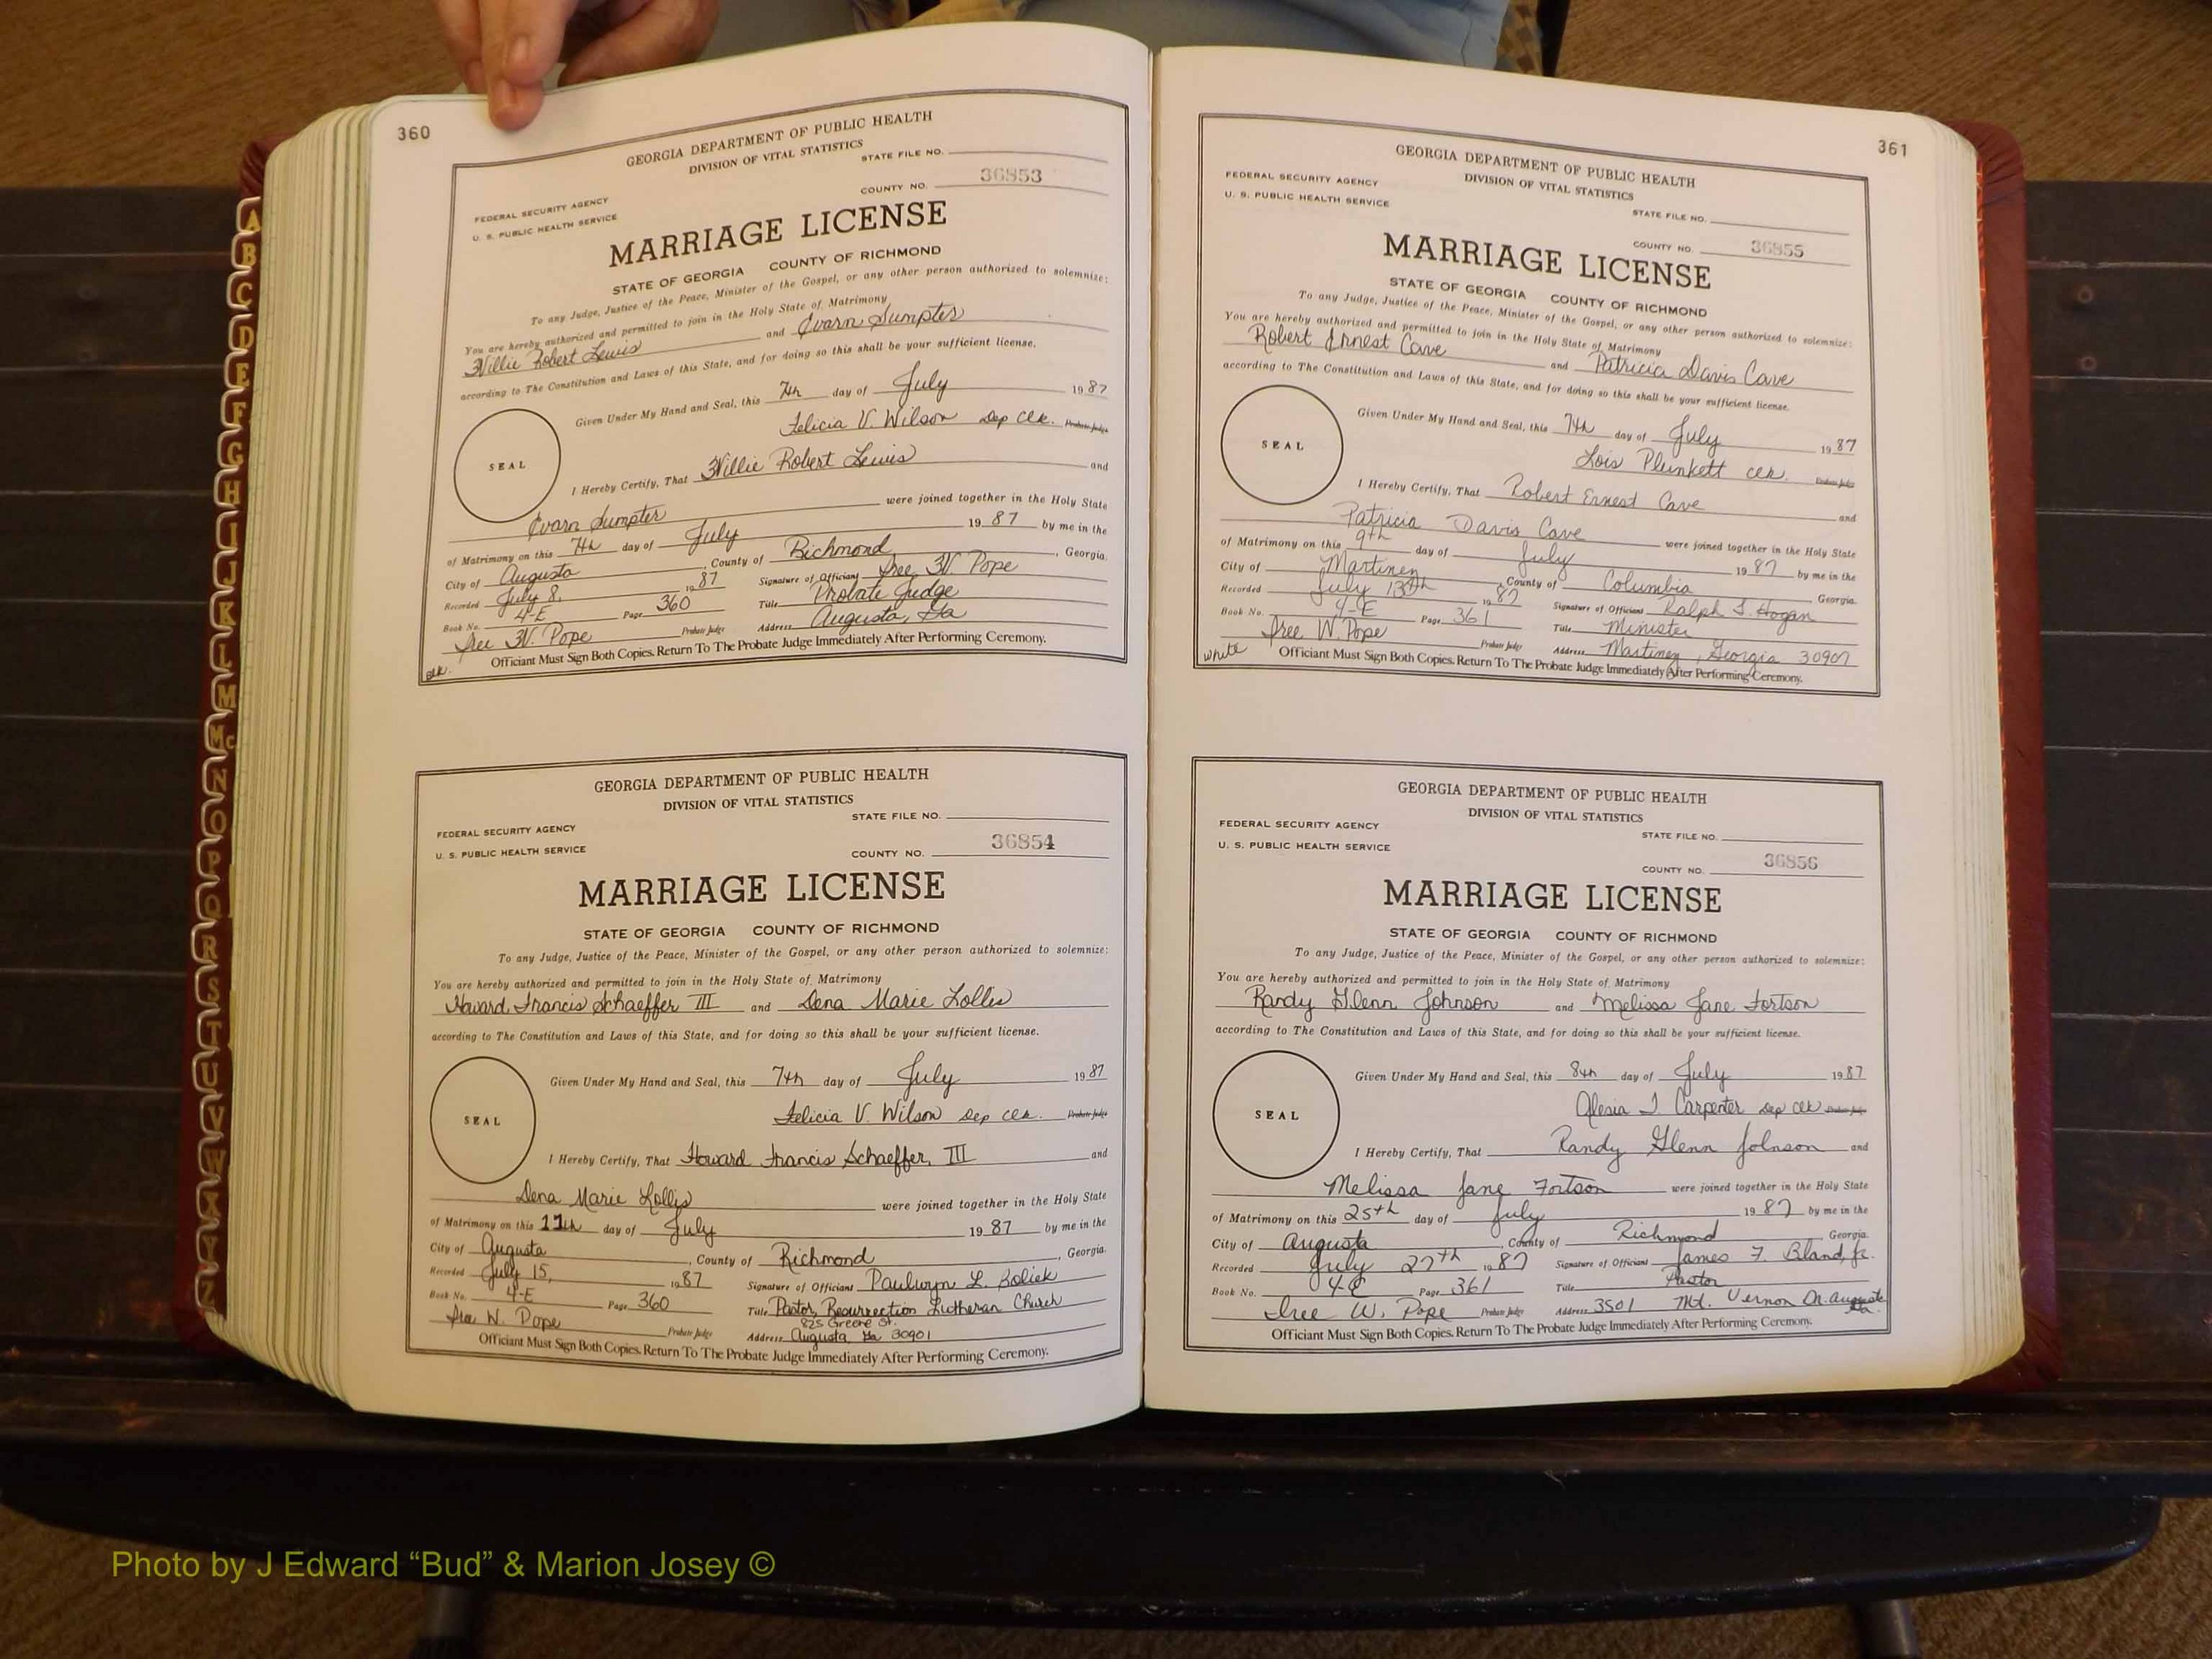 360
GEORGIA DEPARTMENT OF PUBLIC HEALTH
DIVISION OF VITAL STATISTICS
STATE FILE NO.
FEDERAL SECURITY AGENCY
U. S. PUBLIC HEALTH SERVICE
COUNTY NO. 36853
MARRIAGE LICENSE
STATE OF GEORGIA COUNTY OF RICHMOND
To any Judge, Justice of the Peace, Minister of the Gospel, or any other person authorized to solemnize:
You are hereby authorized and permitted to join in the Holy State of Matrimony
Willie Robert Lewis and Evarn Sumpter
according to The Constitution and Laws of this State, and for doing so this shall be your sufficient license.
Given Under My Hand and Seal, this 7th day of July 1987
Felicia V. Wilson Dep Clk. Probate Judge
SEAL
I Hereby Certify, That Willie Robert Lewis and
Evarn Sumpter were joined together in the Holy State
of Matrimony on this 7th day of July 1987 by me in the
City of Augusta, County of Richmond, Georgia.
Recorded July 8, 1987 Signature of Officiant Iree W. Pope
Book No. 4-E Page 360 Title Probate Judge
Iree W. Pope Probate Judge Address Augusta, Ga
Blk. Officiant Must Sign Both Copies. Return To The Probate Judge Immediately After Performing Ceremony.
GEORGIA DEPARTMENT OF PUBLIC HEALTH
DIVISION OF VITAL STATISTICS
STATE FILE NO.
FEDERAL SECURITY AGENCY
U. S. PUBLIC HEALTH SERVICE
COUNTY NO. 36854
MARRIAGE LICENSE
STATE OF GEORGIA COUNTY OF RICHMOND
To any Judge, Justice of the Peace, Minister of the Gospel, or any other person authorized to solemnize:
You are hereby authorized and permitted to join in the Holy State of Matrimony
Howard Francis Schaeffer III and Dena Marie Lollis
according to The Constitution and Laws of this State, and for doing so this shall be your sufficient license.
Given Under My Hand and Seal, this 7th day of July 1987
Felicia V. Wilson Dep Clk. Probate Judge
SEAL
I Hereby Certify, That Howard Francis Schaeffer, III and
Dena Marie Lollis were joined together in the Holy State
of Matrimony on this 11th day of July 1987 by me in the
City of Augusta, County of Richmond, Georgia.
Recorded July 15, 1987 Signature of Officiant Paulwyn L. Boliek
Book No. 4-E Page 360 Title Pastor, Resurrection Lutheran Church
825 Greene St.
Iree W. Pope Probate Judge Address Augusta, Ga 30901
Officiant Must Sign Both Copies. Return To The Probate Judge Immediately After Performing Ceremony.
361
GEORGIA DEPARTMENT OF PUBLIC HEALTH
DIVISION OF VITAL STATISTICS
FEDERAL SECURITY AGENCY
U. S. PUBLIC HEALTH SERVICE
STATE FILE NO.
COUNTY NO. 36855
MARRIAGE LICENSE
STATE OF GEORGIA COUNTY OF RICHMOND
To any Judge, Justice of the Peace, Minister of the Gospel, or any other person authorized to solemnize:
You are hereby authorized and permitted to join in the Holy State of Matrimony
Robert Ernest Cave and Patricia Davis Cave
according to The Constitution and Laws of this State, and for doing so this shall be your sufficient license.
Given Under My Hand and Seal, this 7th day of July 1987
Lois Plunkett Clk. Probate Judge
SEAL
I Hereby Certify, That Robert Ernest Cave and
Patricia Davis Cave were joined together in the Holy State
of Matrimony on this 9th day of July 1987 by me in the
City of Martinez, County of Columbia Georgia.
Recorded July 13th 1987 Signature of Officiant Ralph S. Hogan
Book No. 4-E Page 361 Title Minister
Iree W. Pope Probate Judge Address Martinez, Georgia 30907
White Officiant Must Sign Both Copies. Return To The Probate Judge Immediately After Performing Ceremony.
GEORGIA DEPARTMENT OF PUBLIC HEALTH
DIVISION OF VITAL STATISTICS
FEDERAL SECURITY AGENCY
STATE FILE NO.
U. S. PUBLIC HEALTH SERVICE
COUNTY NO. 36856
MARRIAGE LICENSE
STATE OF GEORGIA COUNTY OF RICHMOND
To any Judge, Justice of the Peace, Minister of the Gospel, or any other person authorized to solemnize:
You are hereby authorized and permitted to join in the Holy State of Matrimony
Randy Glenn Johnson and Melissa Jane Fortson
according to The Constitution and Laws of this State, and for doing so this shall be your sufficient license.
Given Under My Hand and Seal, this 8th day of July 1987
Alesia J. Carpenter Dep Clk Probate Judge
SEAL
I Hereby Certify, That Randy Glenn Johnson and
Melissa Jane Fortson were joined together in the Holy State
of Matrimony on this 25th day of July 1987 by me in the
City of Augusta, County of Richmond Georgia.
Recorded July 27th 1987 Signature of Officiant James F. Bland, Jr.
Book No. 4-E Page 361 Title Pastor
Iree W. Pope Probate Judge Address 3501 Mt. Vernon Dr. Augusta Ga.
Officiant Must Sign Both Copies. Return To The Probate Judge Immediately After Performing Ceremony.
A
B
C
D
E
F
G
H
I
J
K
L
M
Mc
N
O
P
Q
R
S
T
U
V
W
X
Y
Z
Photo by J Edward “Bud” & Marion Josey ©